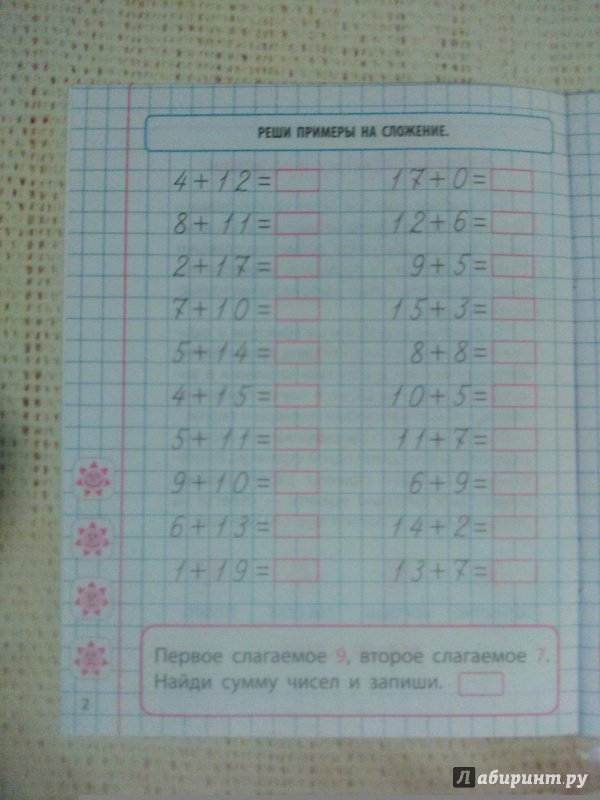 РЕШИ ПРИМЕРЫ НА СЛОЖЕНИЕ.
4+12= 17+0=
8+11= 12+6=
2+17= 9+5=
7+10= 15+3=
5+14= 8+8=
4+15= 10+5=
5+11= 11+7=
9+10= 6+9=
6+13= 14+2=
1+19= 13+7=
Первое слагаемое 9, второе слагаемое 7.
Найди сумму чисел и запиши.
2
Лабиринт.ру